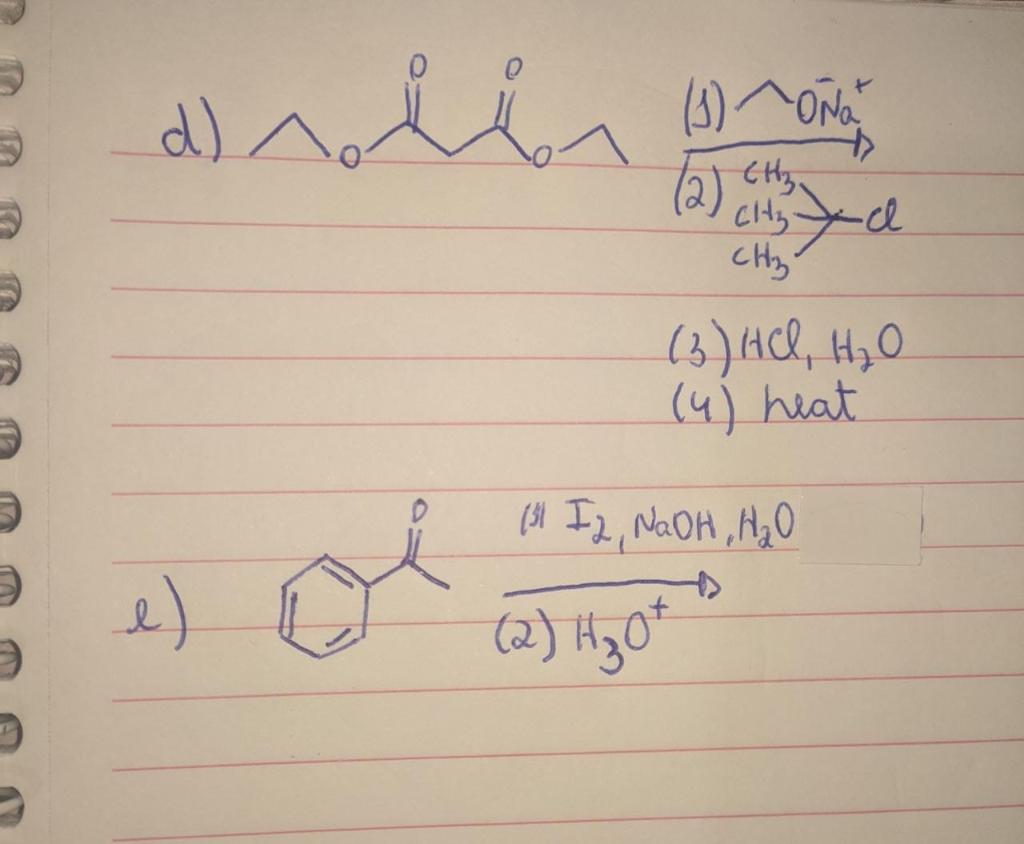 O O
d) O O (1) O⁻Na⁺
(2) CH₃
CH₃ Cl
CH₃
(3) HCl, H₂O
(4) heat
O
(1) I₂, NaOH, H₂O
e)
(2) H₃O⁺